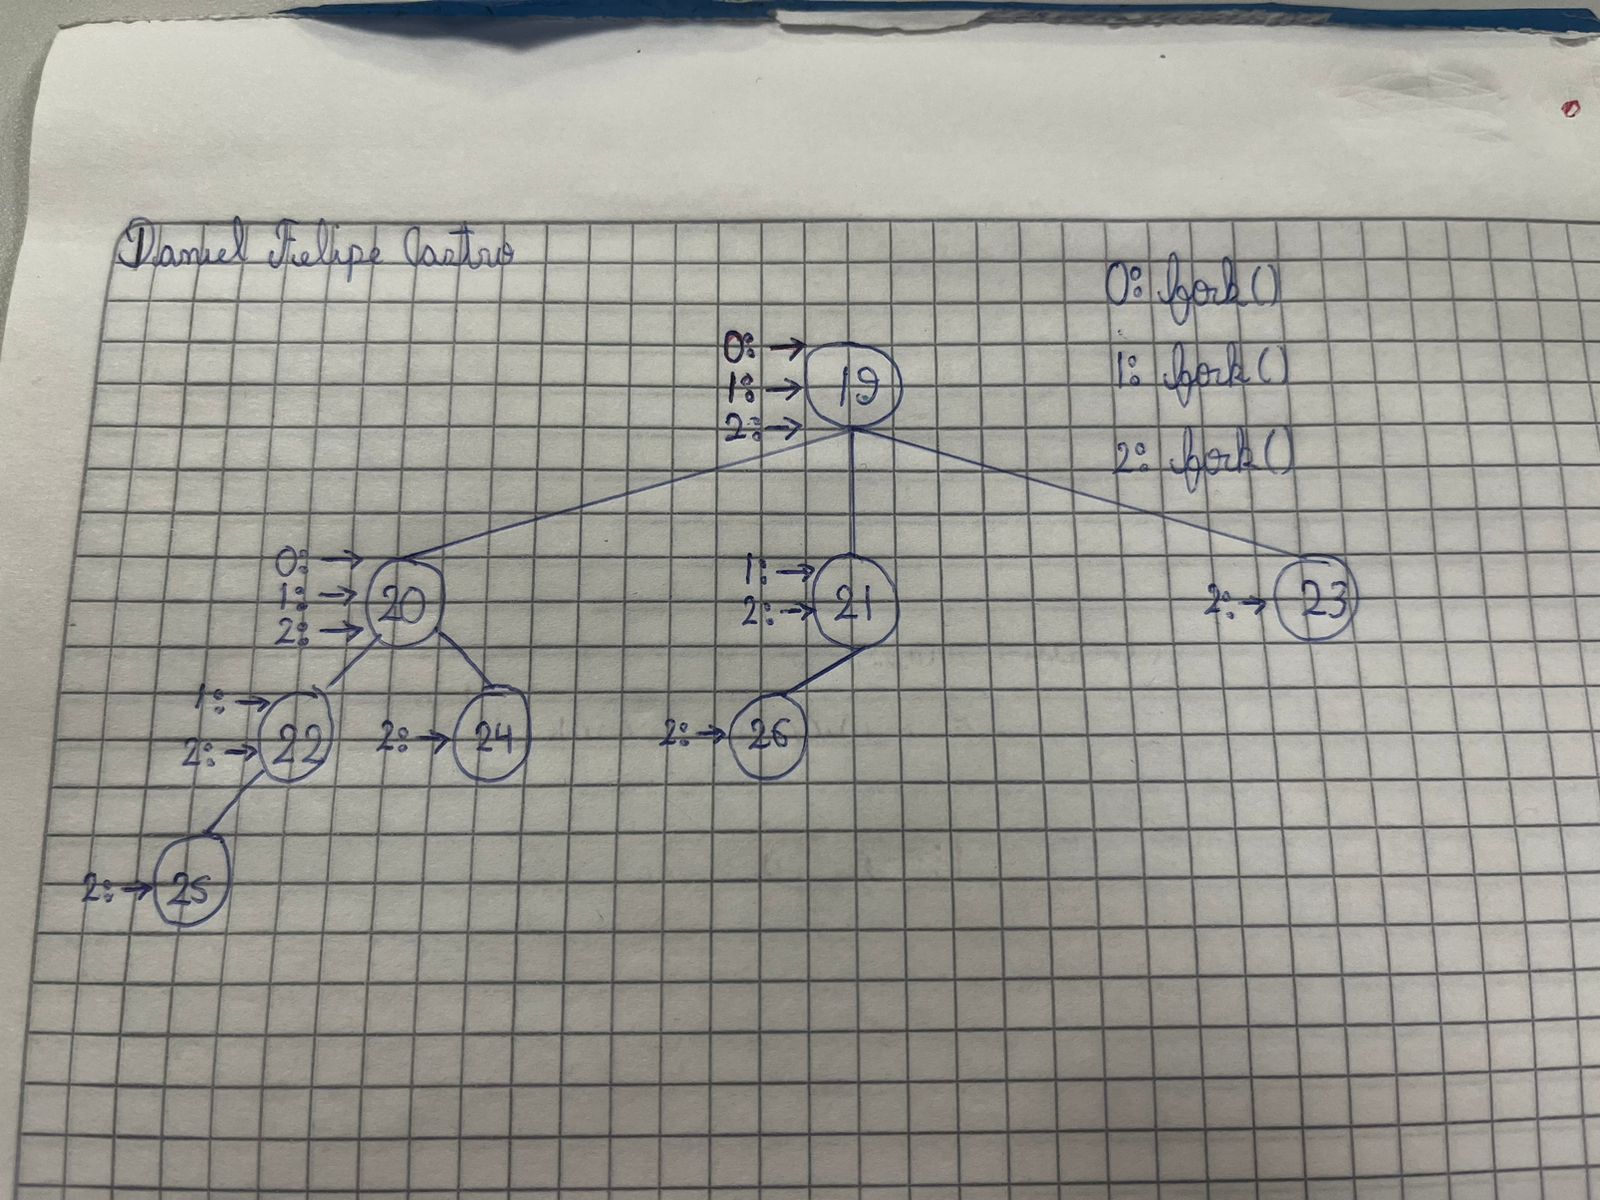 Daniel Felipe Castro
0: fork()
1: fork()
2: fork()
0: →
1: → 19
2: →
0: →
1: → 20
2: →
1: →
2: → 21
2: → 23
1: →
2: → 22
2: → 24
2: → 26
2: → 25